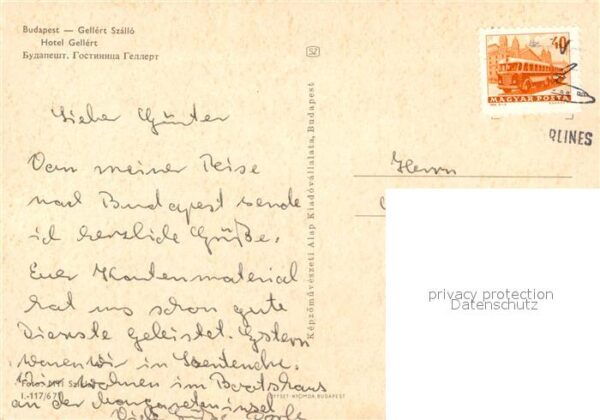 Budapest — Gellért Szálló
Hotel Gellért
Будапешт. Гостиница Геллерт
Lieber Günter
Von meiner Reise
nach Budapest sende
ich herzliche Grüße.
Euer Kartenmaterial
hat uns schon gute
Dienste geleistet. Gestern
waren wir in Szentendre.
Wir wohnen im Bootshaus
an der Margareteninsel
Foto: MTI
I.-117/67
Képzőművészeti Alap Kiadóvállalata, Budapest
OFFSET-NYOMDA, BUDAPEST
SZ
40
MAGYAR POSTA
RLINES
Herrn
privacy protection
Datenschutz